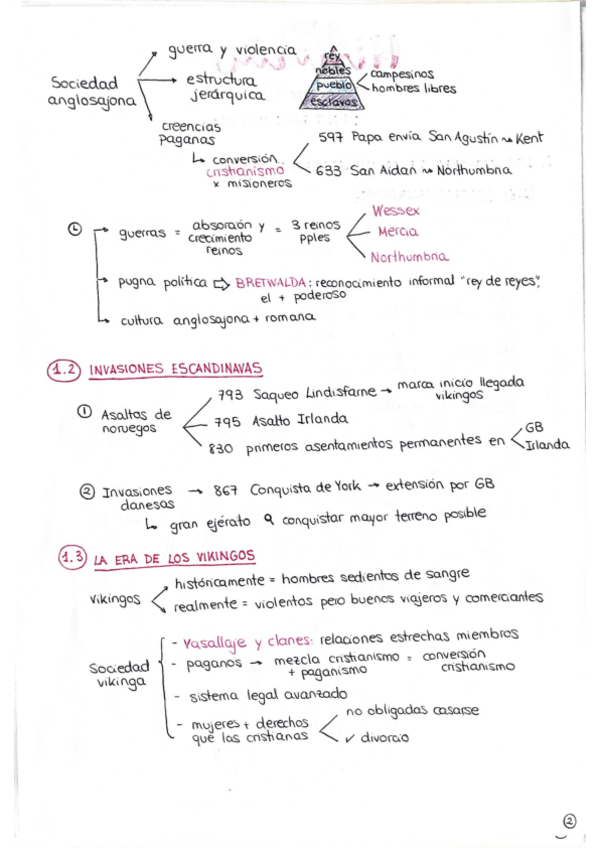 guerra y violencia
Sociedad anglosajona
estructura jerárquica
rey
nobles
pueblo
esclavos
campesinos
hombres libres
creencias paganas
↳ conversión cristianismo x misioneros
597 Papa envía San Agustín ⤳ Kent
633 San Aidan ⤳ Northumbria
guerras = absorción y crecimiento reinos = 3 reinos pples
Wessex
Mercia
Northumbria
pugna política ⇨ BRETWALDA: reconocimiento informal "rey de reyes",
el + poderoso
cultura anglosajona + romana
1.2 INVASIONES ESCANDINAVAS
① Asaltos de noruegos
793 Saqueo Lindisfarne → marca inicio llegada vikingos
795 Asalto Irlanda
830 primeros asentamientos permanentes en
GB
Irlanda
② Invasiones danesas → 867 Conquista de York → extensión por GB
↳ gran ejército conquistar mayor terreno posible
1.3 LA ERA DE LOS VIKINGOS
vikingos
históricamente = hombres sedientos de sangre
realmente = violentos pero buenos viajeros y comerciantes
Sociedad vikinga
- Vasallaje y clanes: relaciones estrechas miembros
- paganos → mezcla cristianismo + paganismo = conversión cristianismo
- sistema legal avanzado
- mujeres + derechos que las cristianas
no obligadas casarse
✓ divorcio
②